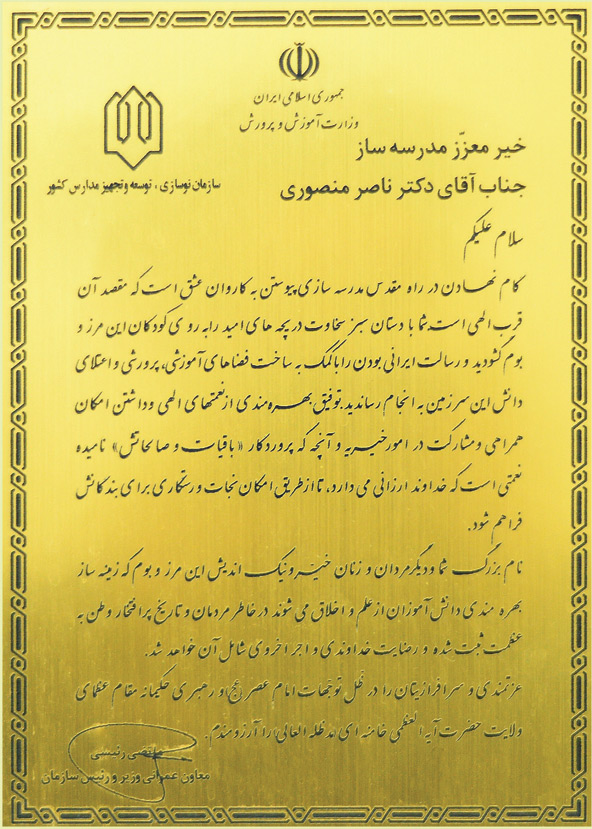 جمهوری اسلامی ایران
وزارت آموزش و پرورش
سازمان نوسازی ، توسعه و تجهیز مدارس کشور
خیر معزّز مدرسه ساز
جناب آقای دکتر ناصر منصوری
سلام علیکم
گام نهادن در راه مقدس مدرسه سازی پیوستن به کاروان عشق است که مقصد آن
قرب الهی است.شما با دستان سبز سخاوت دریچه های امید را به روی کودکان این مرز و
بوم گشودید و رسالت ایرانی بودن را با کمک به ساخت فضاهای آموزشی، پرورشی و اعتلای
دانش این سرزمین به انجام رساندید.توفیق بهره مندی از نعمتهای الهی و داشتن امکان
همراهی و مشارکت در امور خیریه و آنچه که پروردگار «باقیات و صالحاتش» نامیده
نعمتی است که خداوند ارزانی می دارد، تا از طریق امکان نجات و رستگاری برای بندگانش
فراهم شود.
نام بزرگ شما و دیگر مردان و زنان خیّر و نیک اندیش این مرز و بوم که زمینه ساز
بهره مندی دانش آموزان از علم و اخلاق می شوند در خاطر مردمان و تاریخ پرافتخار وطن به
عظمت ثبت شده و رضایت خداوندی و اجر اخروی شامل آن خواهد شد.
عزتمندی و سرافرازیتان را در ظل توجهات امام عصر(عج) و رهبری حکیمانه مقام عظمای
ولایت حضرت آیه العظمی خامنه ای مدظله العالی را آرزومندم.
مرتضی رئیسی
معاون عمرانی وزیر و رئیس سازمان